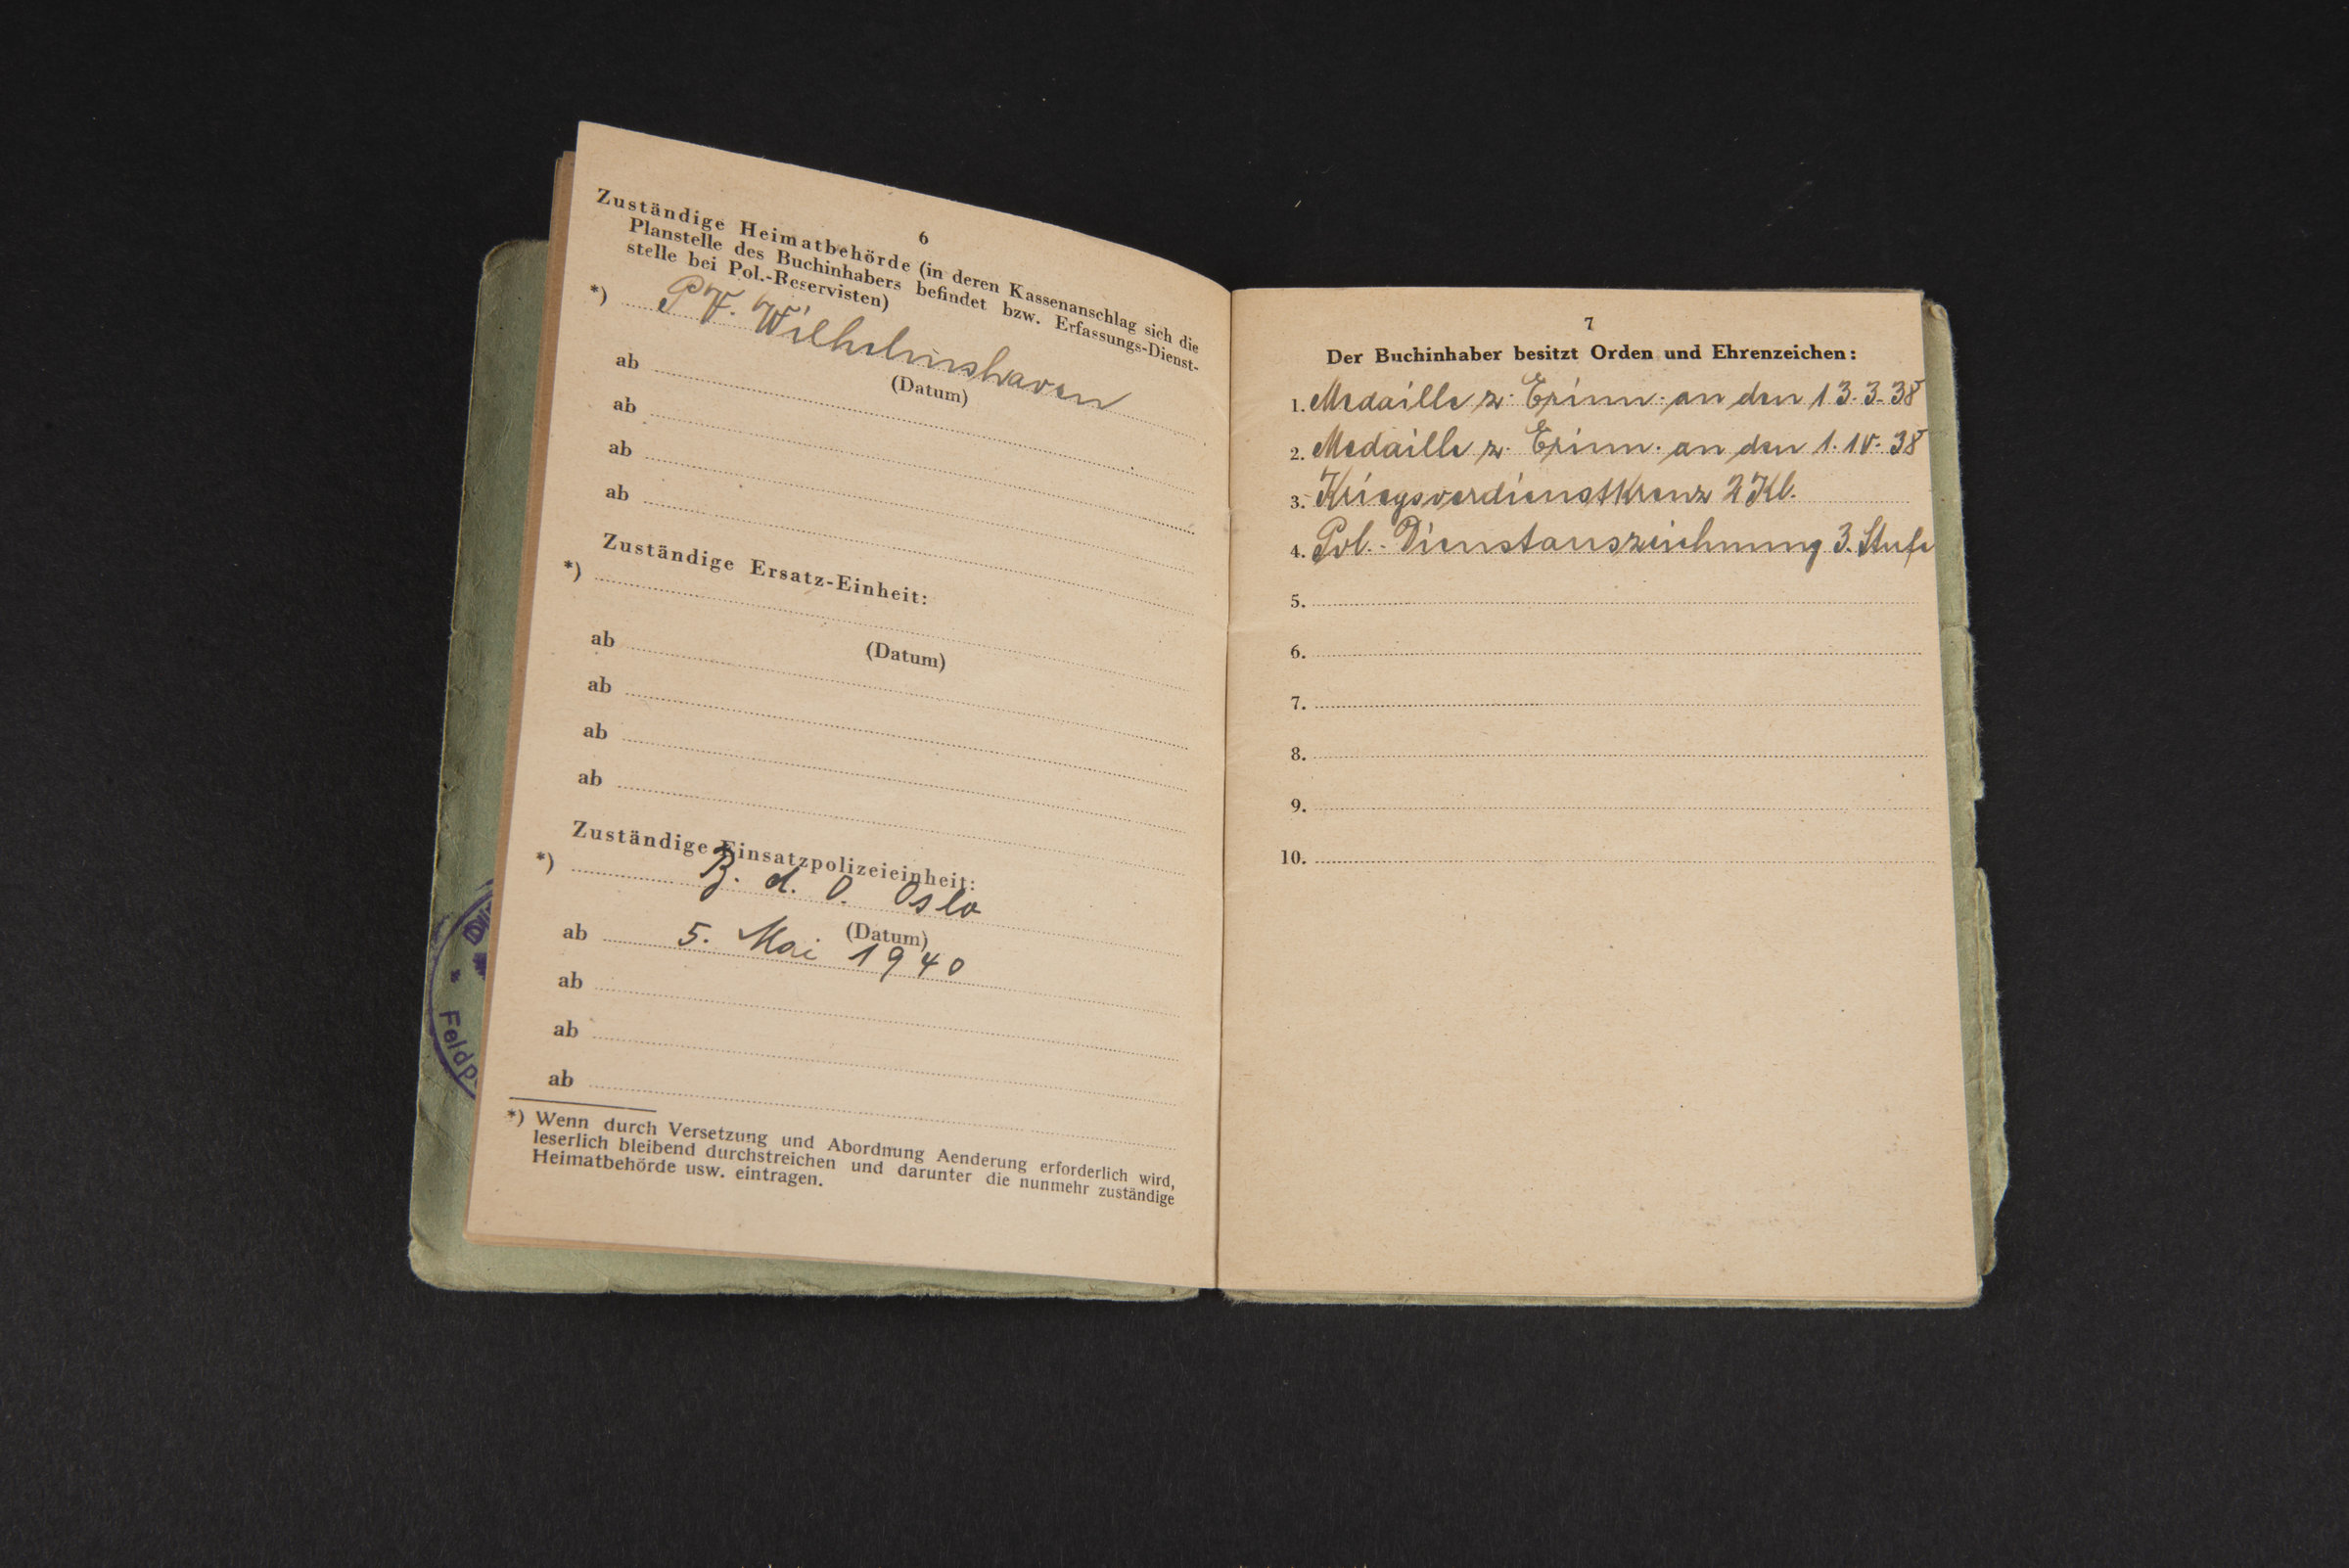 6
Zuständige Heimatbehörde (in deren Kassenanschlag sich die
Planstelle des Buchinhabers befindet bzw. Erfassungs-Dienst-
stelle bei Pol.-Reservisten)
*) P.V. Wilhelmshaven
ab
(Datum)
ab
ab
ab
Zuständige Ersatz-Einheit:
*)
ab
(Datum)
ab
ab
ab
Zuständige Einsatzpolizeieinheit:
*) B. d. O. Oslo
ab 5. Mai 1940
(Datum)
ab
ab
ab
*) Wenn durch Versetzung und Abordnung Aenderung erforderlich wird,
leserlich bleibend durchstreichen und darunter die nunmehr zuständige
Heimatbehörde usw. eintragen.
Feldp
7
Der Buchinhaber besitzt Orden und Ehrenzeichen:
1. Medaille z. Erinn. an den 13.3.38
2. Medaille z. Erinn. an den 1.10.38
3. Kriegsverdienstkreuz 2 Kl.
4. Pol.-Dienstauszeichnung 3. Stufe
5.
6.
7.
8.
9.
10.